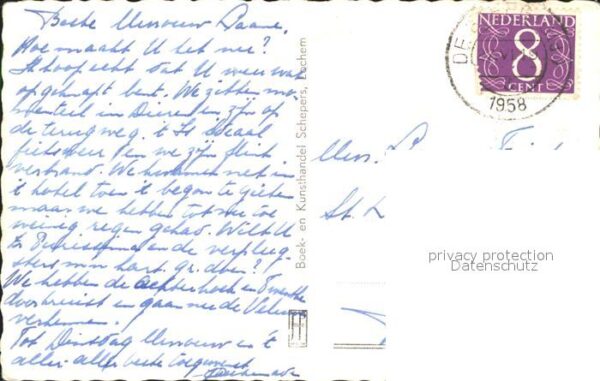 Beste Mevrouw Daane.
Hoe maakt U het nu?
Ik hoop echt dat U weer wat
op geknapt bent. We zitten mo-
menteel in Dieren en zijn op
de terugweg. 't Is ideaal
fietsweer en we zijn flink
verbrand. We kwamen net in
't hotel toen 't begon te gieten
maar we hebben tot nu toe
weinig regen gehad. Wilt U
Zr en de verpleeg-
sters mijn hart. gr. doen?
We hebben de achterhoek en Twenthe
doorkruist en gaan nu de Veluwe
verkennen.
Tot Dinsdag Mevrouw en 't
aller aller beste toegewenst
Boek- en Kunsthandel Schepers, Lochem
NEDERLAND
8
CENT
DE
1958
Mevr.
St.
privacy protection
Datenschutz